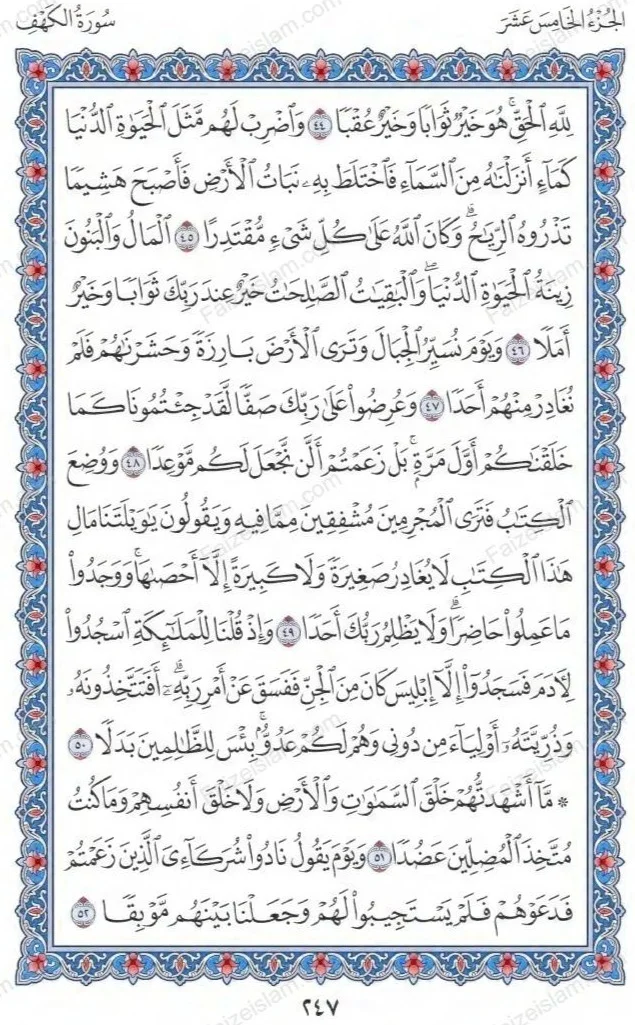 الجُزْءُ الخَامِسَ عَشَرَ
سُورَةُ الكَهْفِ
لِلَّهِ ٱلْحَقِّ ۚ هُوَ خَيْرٌ ثَوَابًا وَخَيْرٌ عُقْبًا ٤٤ وَٱضْرِبْ لَهُم مَّثَلَ ٱلْحَيَوٰةِ ٱلدُّنْيَا
كَمَآءٍ أَنزَلْنَٰهُ مِنَ ٱلسَّمَآءِ فَٱخْتَلَطَ بِهِۦ نَبَاتُ ٱلْأَرْضِ فَأَصْبَحَ هَشِيمًا
تَذْرُوهُ ٱلرِّيَٰحُ ۗ وَكَانَ ٱللَّهُ عَلَىٰ كُلِّ شَىْءٍ مُّقْتَدِرًا ٤٥ ٱلْمَالُ وَٱلْبَنُونَ
زِينَةُ ٱلْحَيَوٰةِ ٱلدُّنْيَا ۖ وَٱلْبَٰقِيَٰتُ ٱلصَّٰلِحَٰتُ خَيْرٌ عِندَ رَبِّكَ ثَوَابًا وَخَيْرٌ
أَمَلًا ٤٦ وَيَوْمَ نُسَيِّرُ ٱلْجِبَالَ وَتَرَى ٱلْأَرْضَ بَارِزَةً وَحَشَرْنَٰهُمْ فَلَمْ
نُغَادِرْ مِنْهُمْ أَحَدًا ٤٧ وَعُرِضُوا۟ عَلَىٰ رَبِّكَ صَفًّا لَّقَدْ جِئْتُمُونَا كَمَا
خَلَقْنَٰكُمْ أَوَّلَ مَرَّةٍۭ ۚ بَلْ زَعَمْتُمْ أَلَّن نَّجْعَلَ لَكُم مَّوْعِدًا ٤٨ وَوُضِعَ
ٱلْكِتَٰبُ فَتَرَى ٱلْمُجْرِمِينَ مُشْفِقِينَ مِمَّا فِيهِ وَيَقُولُونَ يَٰوَيْلَتَنَا مَالِ
هَٰذَا ٱلْكِتَٰبِ لَا يُغَادِرُ صَغِيرَةً وَلَا كَبِيرَةً إِلَّآ أَحْصَىٰهَا ۚ وَوَجَدُوا۟
مَا عَمِلُوا۟ حَاضِرًا ۗ وَلَا يَظْلِمُ رَبُّكَ أَحَدًا ٤٩ وَإِذْ قُلْنَا لِلْمَلَٰٓئِكَةِ ٱسْجُدُوا۟
لِـَٔادَمَ فَسَجَدُوٓا۟ إِلَّآ إِبْلِيسَ كَانَ مِنَ ٱلْجِنِّ فَفَسَقَ عَنْ أَمْرِ رَبِّهِۦٓ ۗ أَفَتَتَّخِذُونَهُۥ
وَذُرِّيَّتَهُۥٓ أَوْلِيَآءَ مِن دُونِى وَهُمْ لَكُمْ عَدُوٌّۢ ۚ بِئْسَ لِلظَّٰلِمِينَ بَدَلًا ٥٠
* مَّآ أَشْهَدتُّهُمْ خَلْقَ ٱلسَّمَٰوَٰتِ وَٱلْأَرْضِ وَلَا خَلْقَ أَنفُسِهِمْ وَمَا كُنتُ
مُتَّخِذَ ٱلْمُضِلِّينَ عَضُدًا ٥١ وَيَوْمَ يَقُولُ نَادُوا۟ شُرَكَآءِىَ ٱلَّذِينَ زَعَمْتُمْ
فَدَعَوْهُمْ فَلَمْ يَسْتَجِيبُوا۟ لَهُمْ وَجَعَلْنَا بَيْنَهُم مَّوْبِقًا ٥٢
٢٤٧
Faizeislam.com